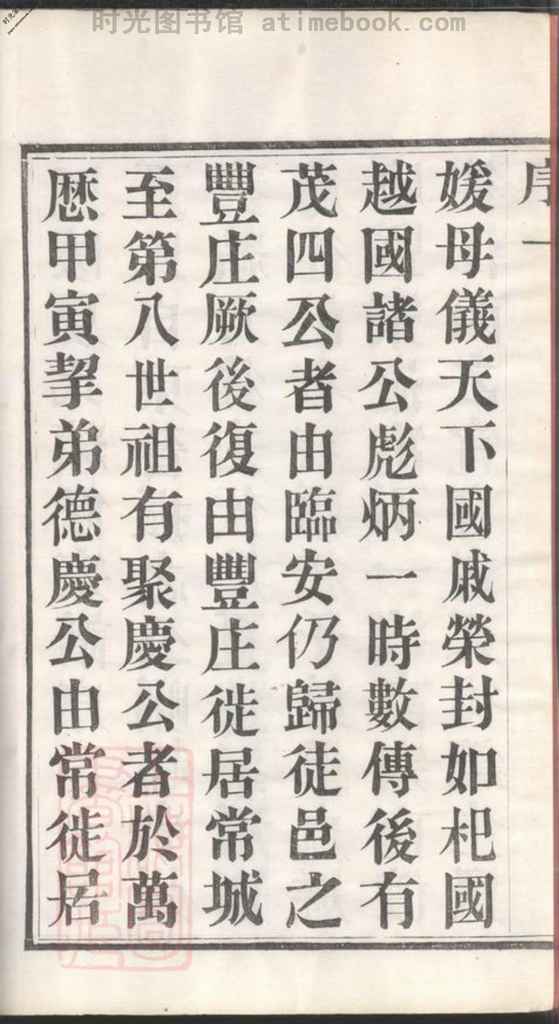 时光图书馆 atimebook.com
序一
媛母儀天下國戚榮封如杞國
越國諸公彪炳一時數傳後有
茂四公者由臨安仍歸徒邑之
豐庄厥後復由豐庄徙居常城
至第八世祖有聚慶公者於萬
厯甲寅挈弟德慶公由常徙居